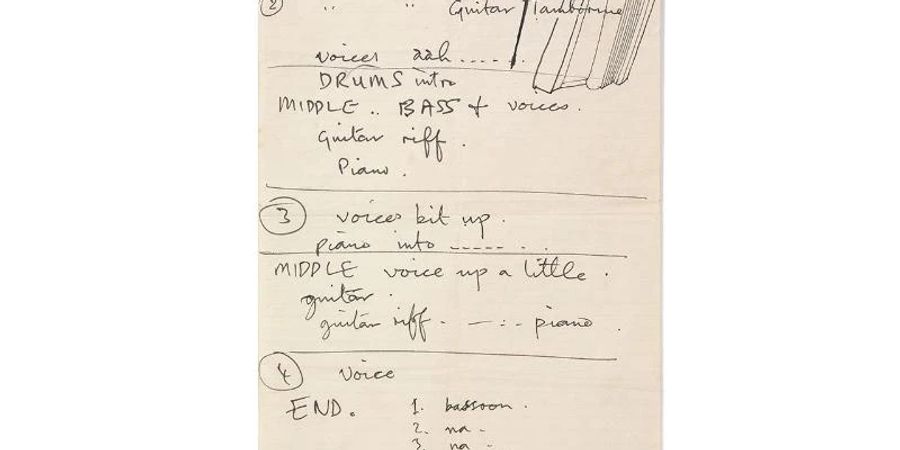 ② " " Guitar Tambourine
voices aah.....
DRUMS intro
MIDDLE.. BASS + voices.
Guitar riff.
Piano.
③ voices bit up.
piano into ----- . .
MIDDLE voice up a little.
guitar.
guitar riff. - —:- piano.
④ Voice
END. 1. bassoon.
2. na -
3. na -